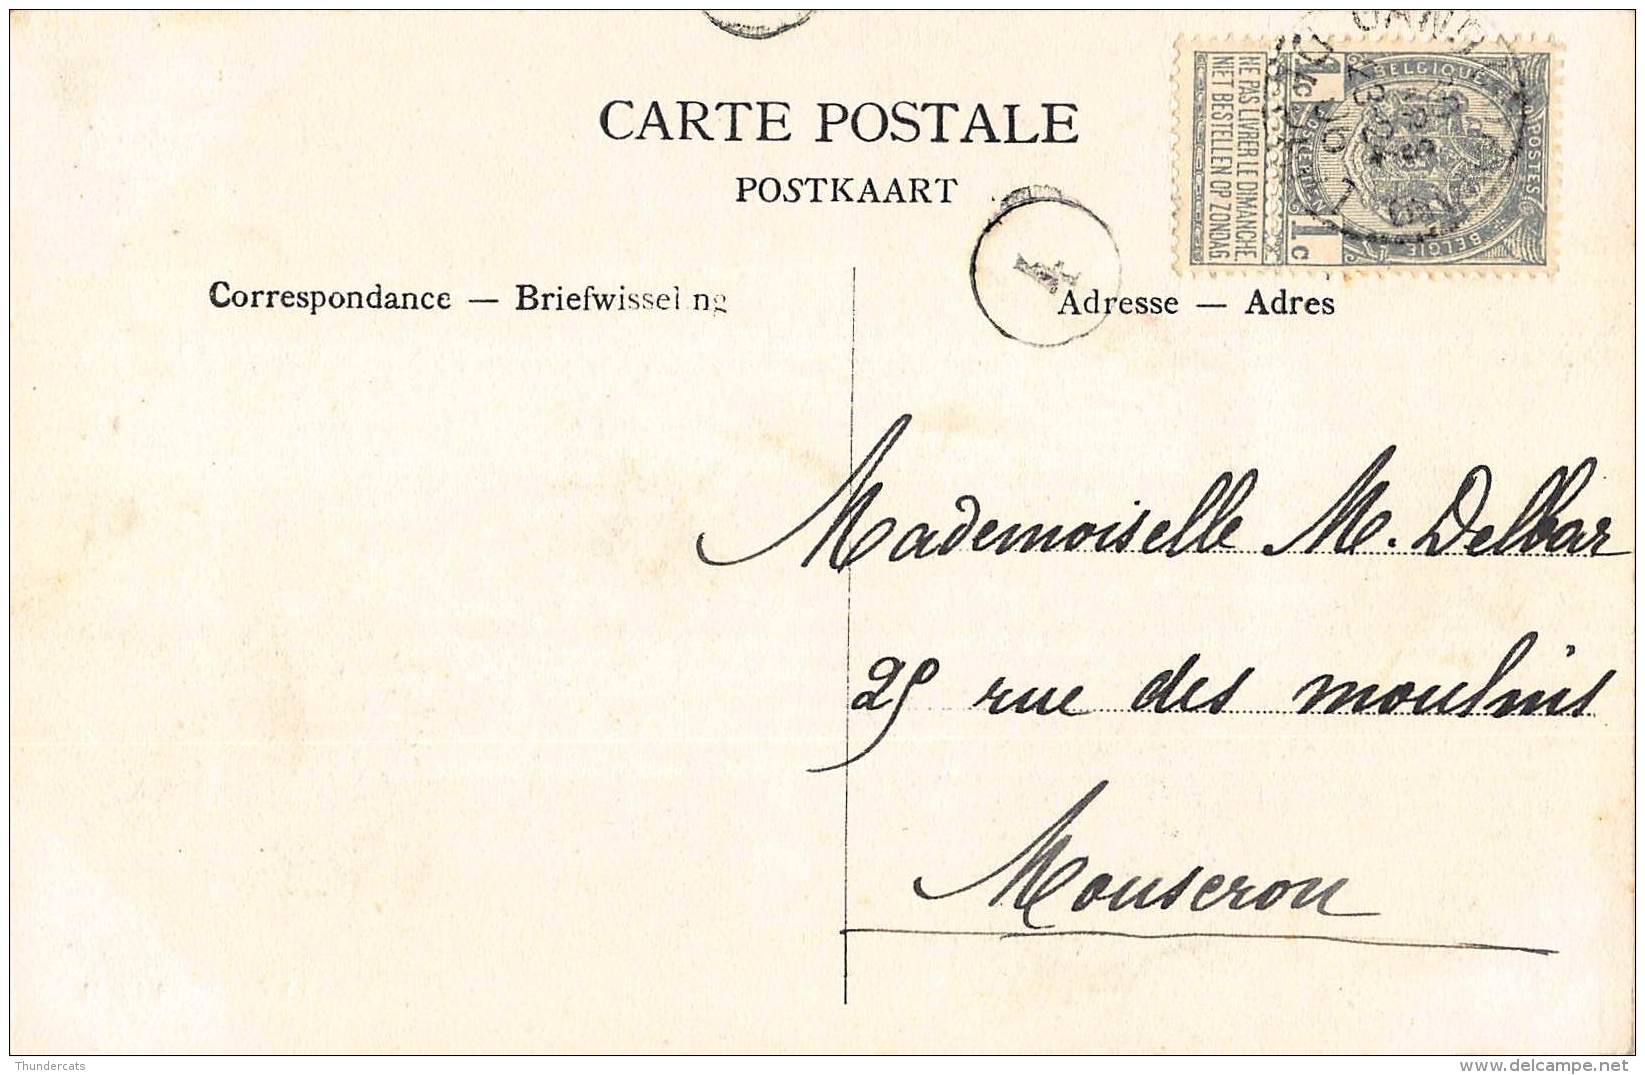 CARTE POSTALE
POSTKAART
Correspondance — Briefwisseling
Adresse — Adres
NE PAS LIVRER LE DIMANCHE
NIET BESTELLEN OP ZONDAG
BELGIQUE
POSTES
BELGIE
1c
1c
1
Mademoiselle M. Delbar
25 rue des moulins
Mouscron
Thundercats
delcampe.net